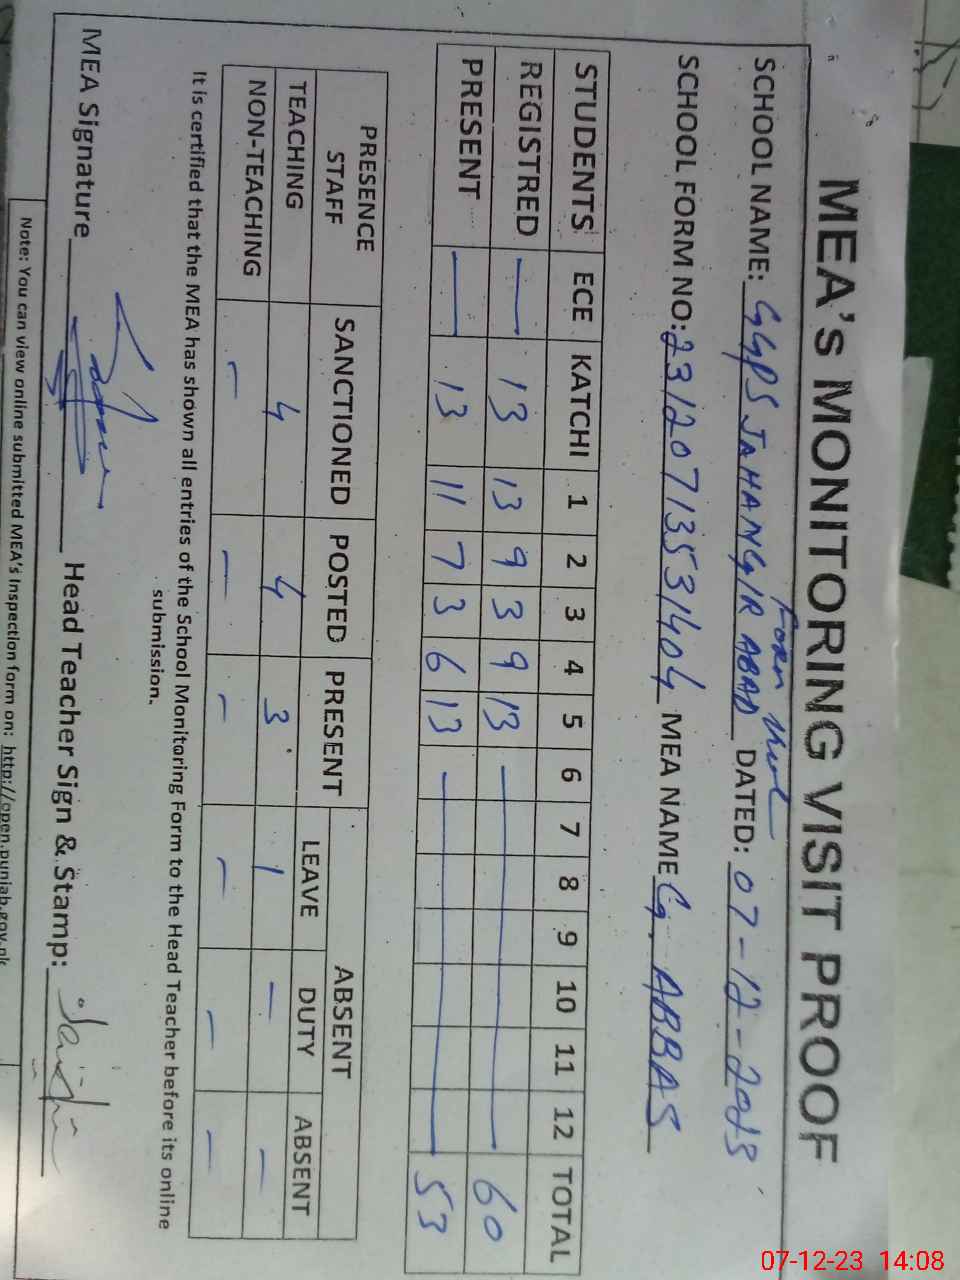 MEA'S MONITORING VISIT PROOF
SCHOOL NAME: GGPS JAHANGIR ABAD DATED: 07-12-2023
SCHOOL FORM NO: 23120713531404 MEA NAME G. ABBAS
STUDENTS ECE KATCHI 1 2 3 4 5 6 7 8 9 10 11 12 TOTAL
REGISTRED — 13 13 9 3 9 13 — 60
PRESENT — 13 11 7 3 6 13 — 53
PRESENCE STAFF SANCTIONED POSTED PRESENT ABSENT
LEAVE DUTY ABSENT
TEACHING 4 4 3 1 — —
NON-TEACHING — — — — — —
It is certified that the MEA has shown all entries of the School Monitoring Form to the Head Teacher before its online
submission.
MEA Signature Head Teacher Sign & Stamp:
Note: You can view online submitted MEA's Inspection form on: http://open.punjab.gov.pk
07-12-23 14:08